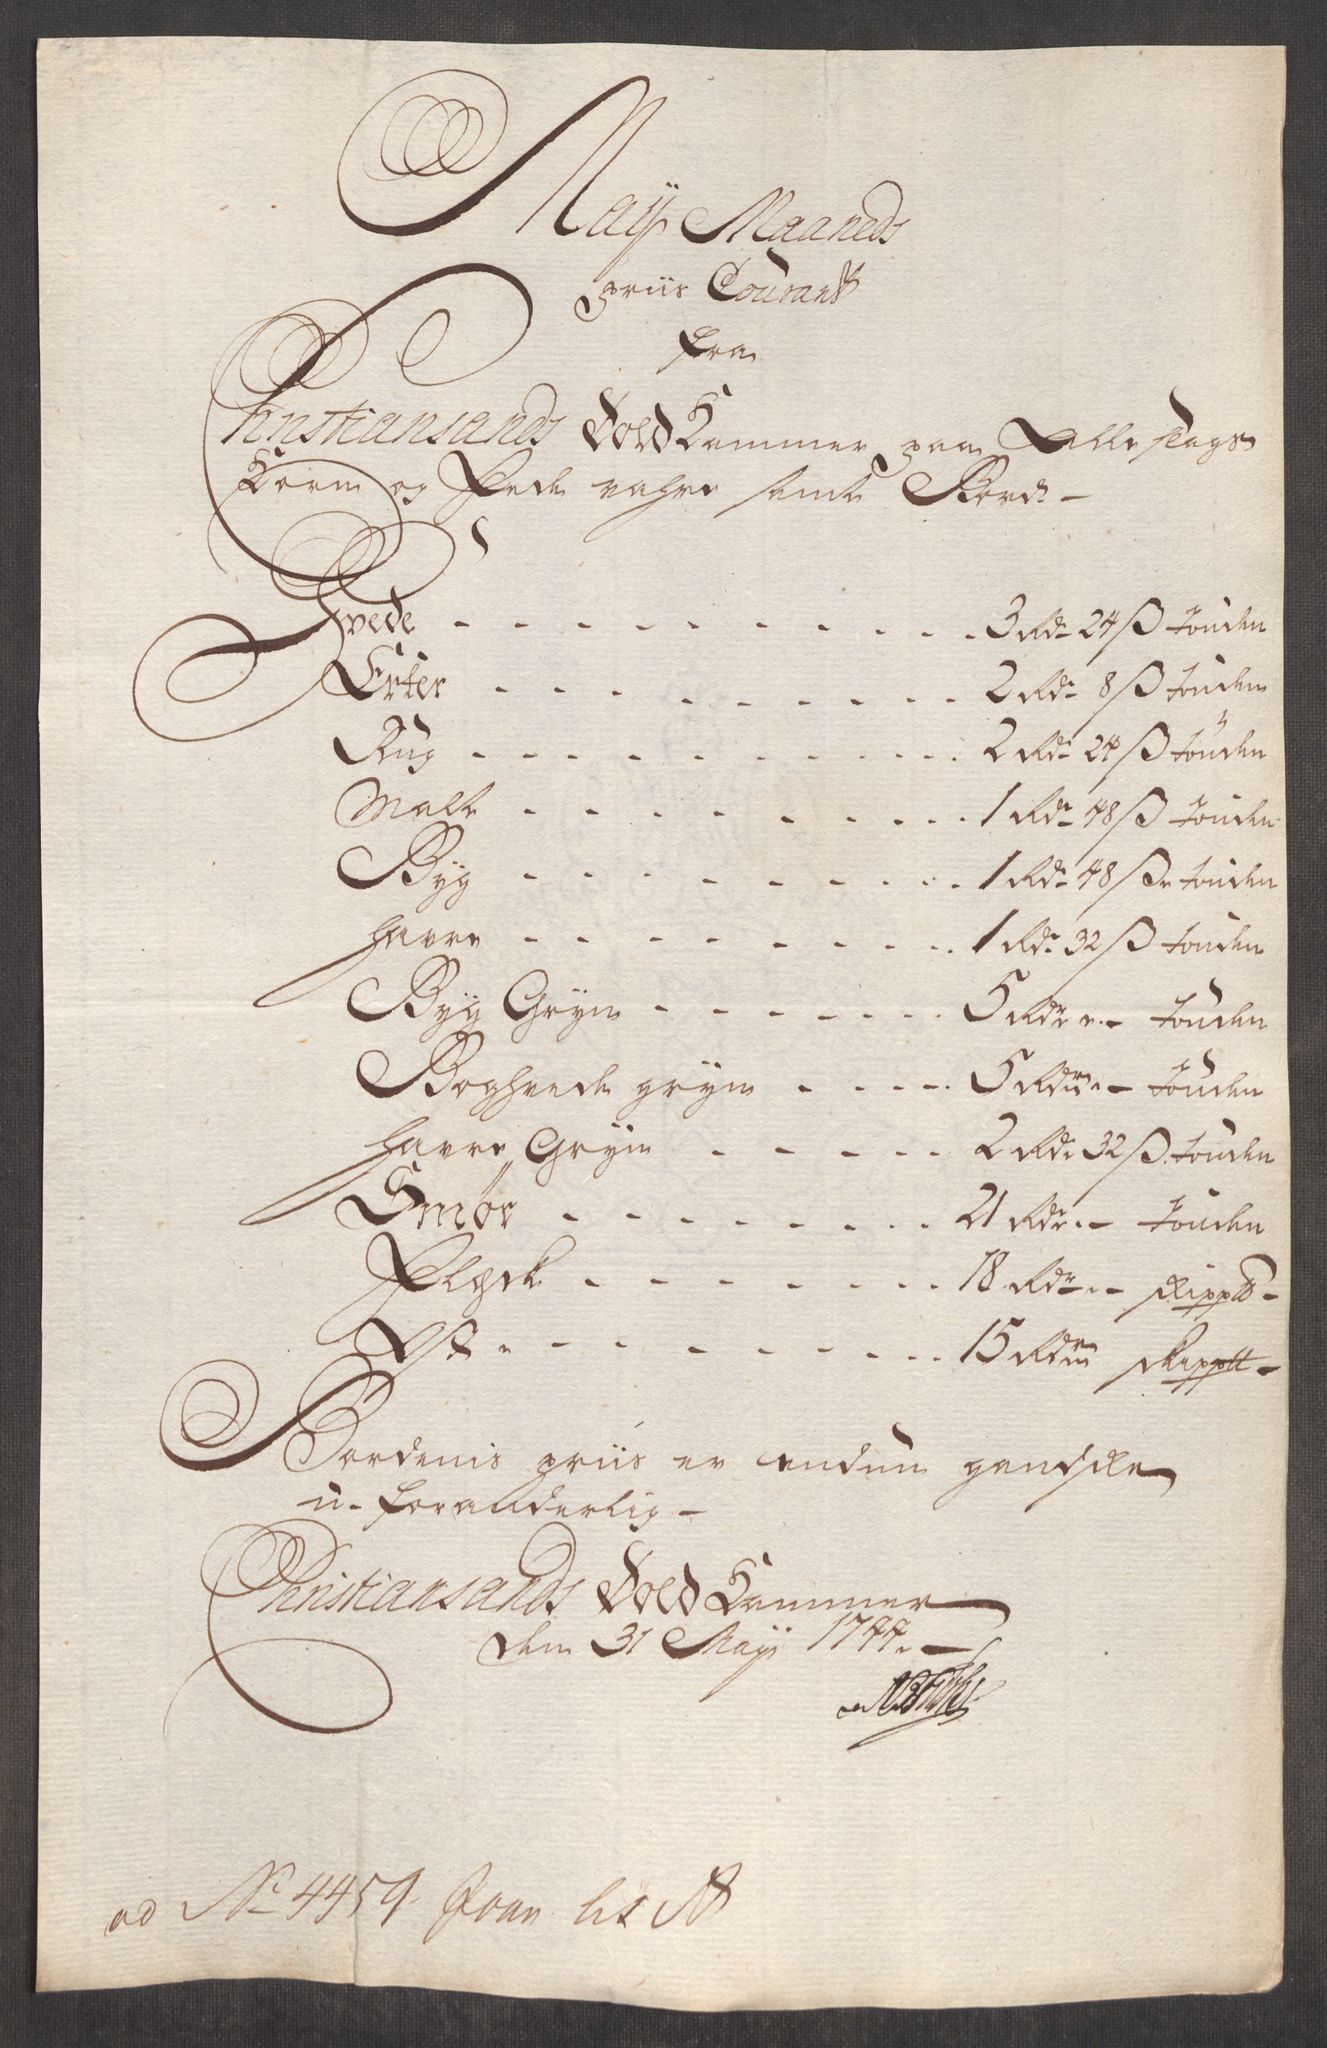 Maij Maaneds
priis Courant
fra
Christiansands Told Kammer paa Alle slags
Korn og Fede vahre samt Bord. -
Hvede - - - - - - - - - - - 3 Rdr 24 ß Tønden
Erter - - - - - - - - - - 2 Rdr 8 ß Tønden
Rug - - - - - - - - - - - 2 Rdr 24 ß Tønden
Malt - - - - - - - - - - 1 Rdr 48 ß Tønden
Byg - - - - - - - - - - 1 Rdr 48 ß Tønden
Havre - - - - - - - - - - 1 Rdr 32 ß Tønden
Byg Gryn - - - - - - - 5 Rdr - Tønden
Boghvede gryn - - - - - 5 Rdr - Tønden
Havre Gryn - - - - - 2 Rdr 32 ß Tønden
Smör - - - - - - - - 21 Rdr - Tønden
Flesk - - - - - - - - 18 Rdr - skippd -
Ost - - - - - - - - - - 15 Rdr skippd -
Bordenis priis er endnu gandske
u-foranderlig -
Christiansands Told Kammer
den 31 Maij 1744. -
ad No 4459